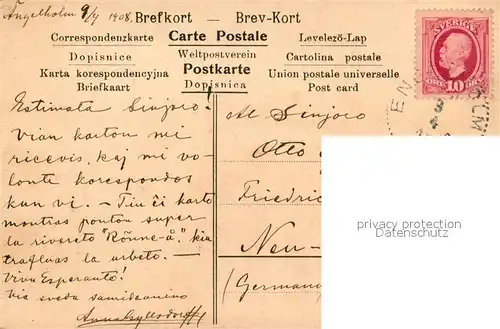 Ängelholm 9/4 1908.
Brefkort — Brev-Kort
Correspondenzkarte Carte Postale Levelező-Lap
Dopisnice Weltpostverein Cartolina postale
Karta korespondencyjna Postkarte Union postale universelle
Briefkaart Dopisnica Post card
SVERIGE
10 ÖRE 10
Estimata Sinjoro!
Vian karton mi
ricevis, kaj mi vo-
lonte korespondos
kun vi. — Tiu ĉi karto
montras ponton super
la rivereto "Rönne-å", kiu
trafluas la urbeto. —
Vivu Esperanto!
Via sveda samideanino
Al Sinjoro
Otto
Friedric
Neu-
(Germany
privacy protection
Datenschutz